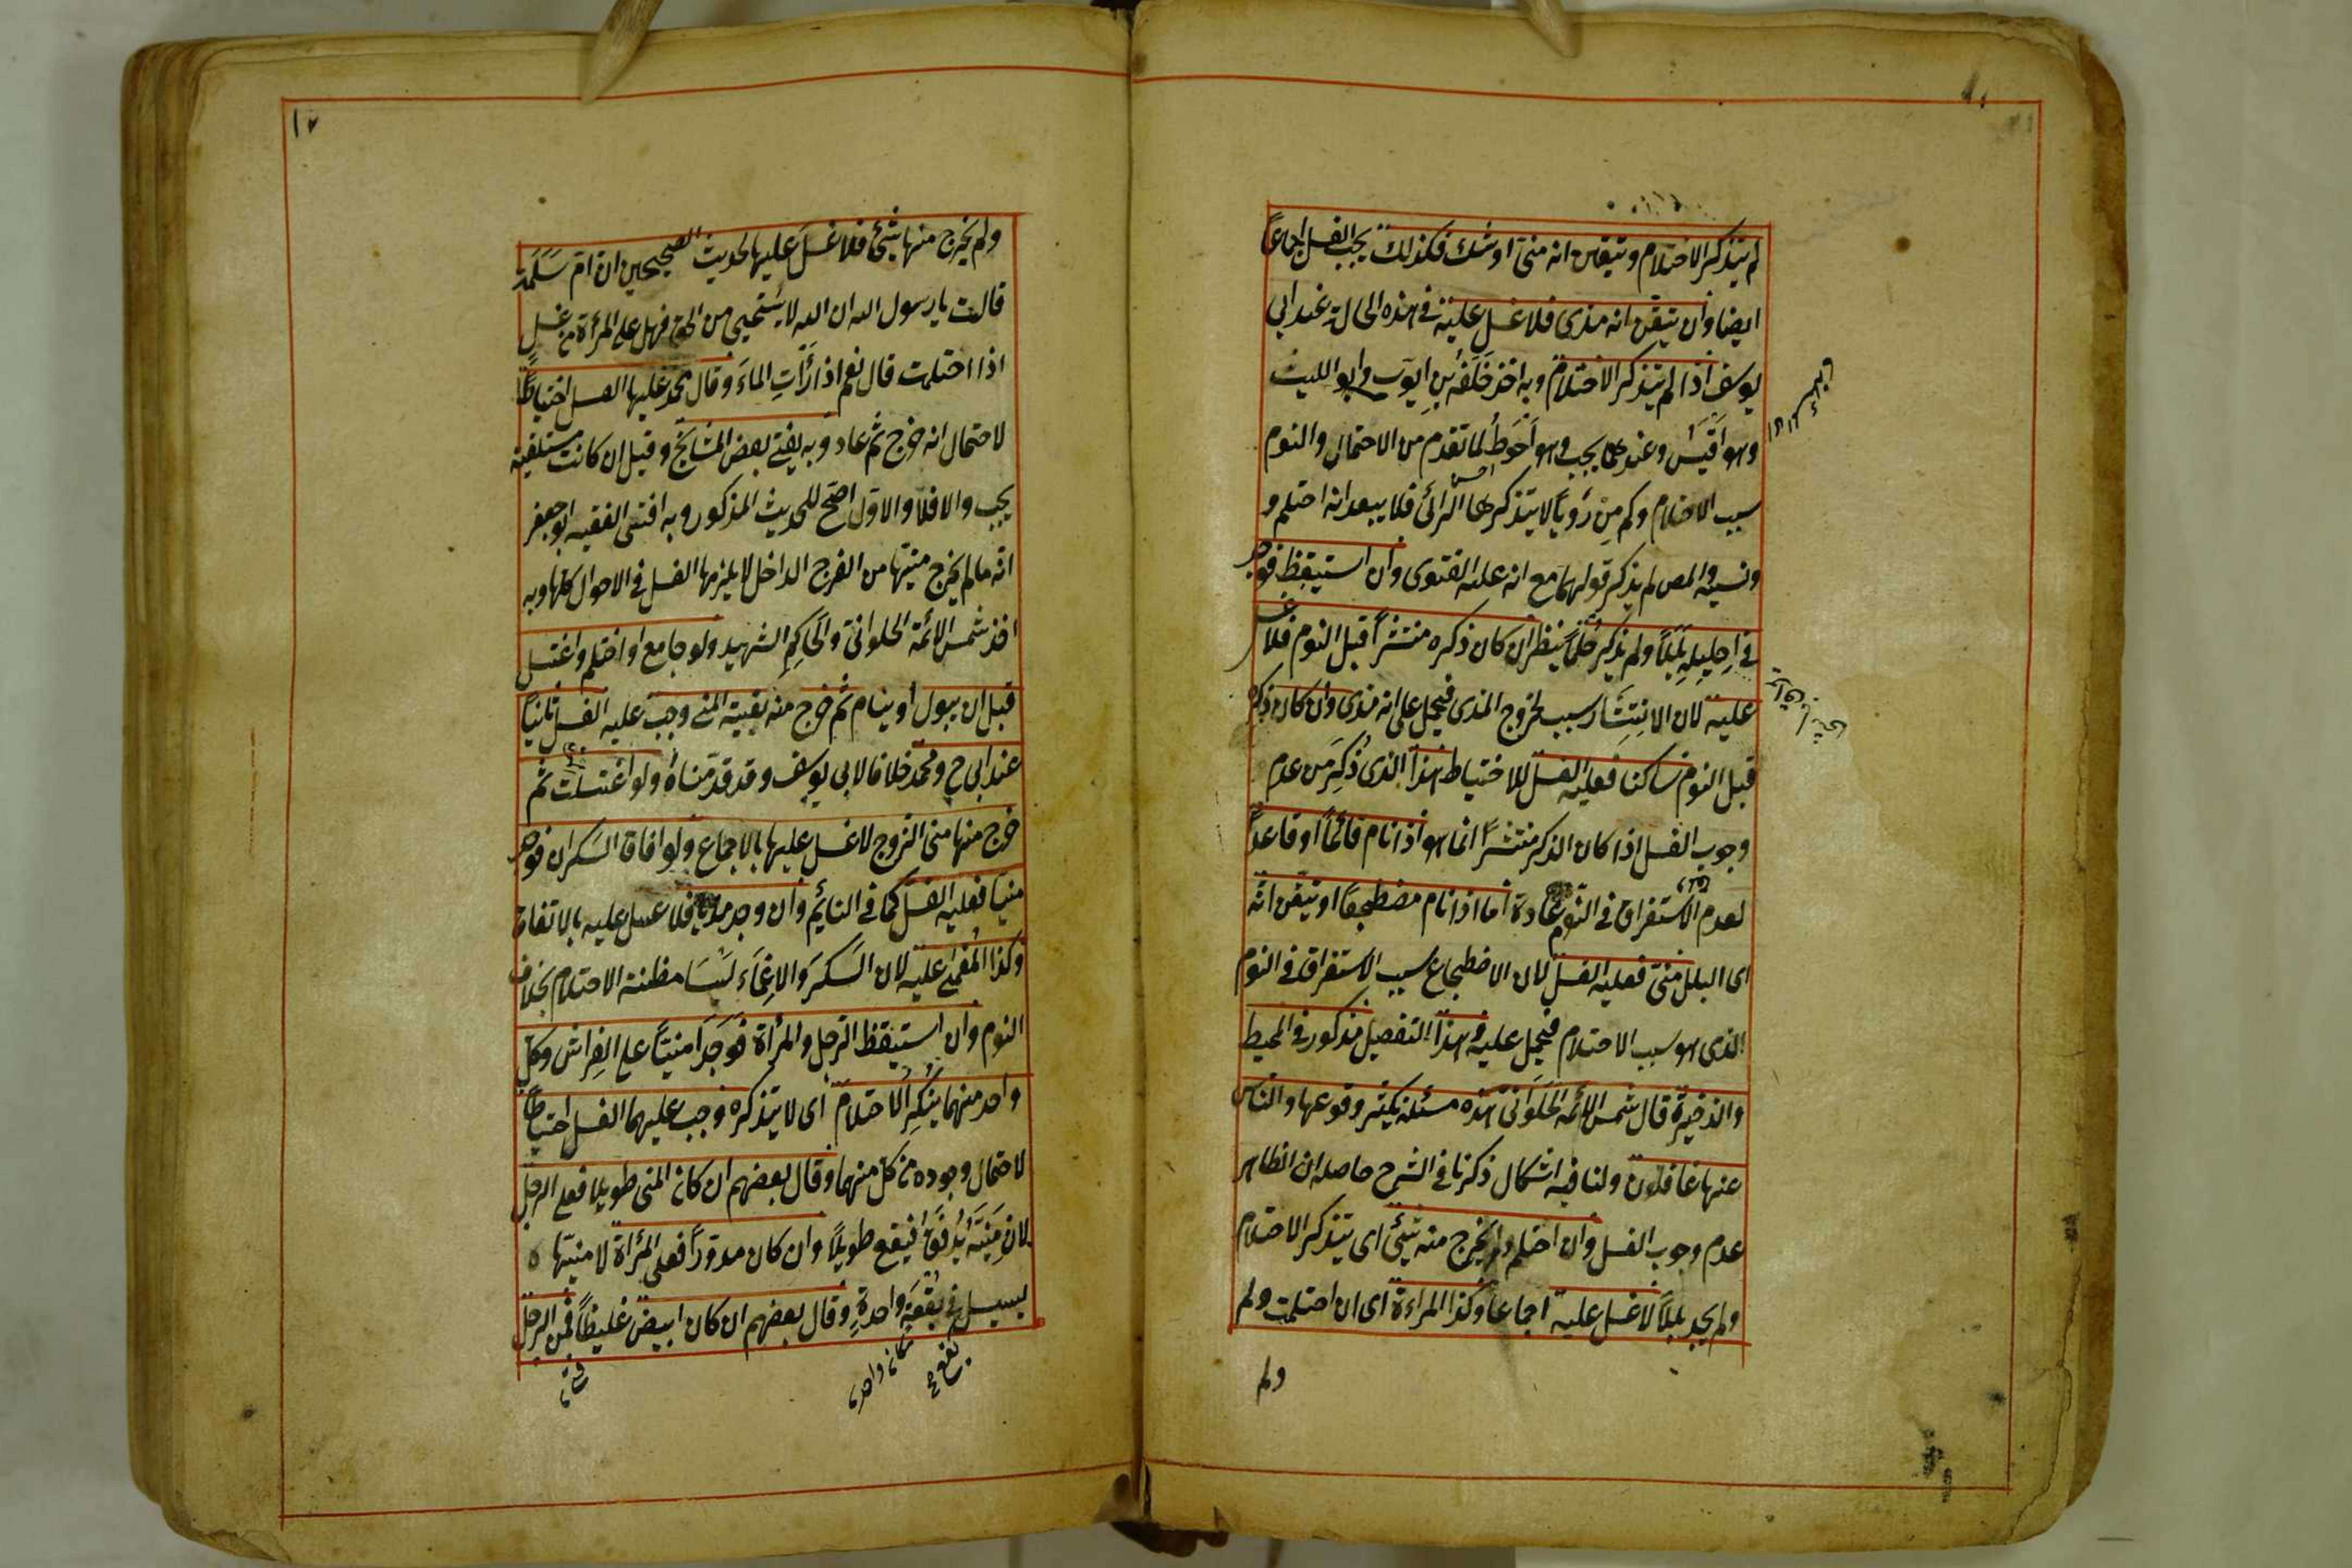 لم يتذكر الاحتلام وتيقن انه منى او شك فكذلك يجب الغسل اجماعاً
ايضا وان تيقن انه مذى فلا غسل عليه فى هذه الحالة عند ابى
يوسف اذا لم يتذكر الاحتلام وبه اخذ خلف بن ايوب وابو الليث
وهو اقيس وعندهما يجب وهو احوط لما تقدم من الاحتمال والنوم
سبب الاحتلام وكم من رؤيا لا يتذكرها الرائى فلا يبعد انه احتلم و
ونسيه والمص لم يذكر قولهما مع انه عليه الفتوى وان استيقظ فوجد
فى احليله بللاً ولم يذكر حلماً ينظر ان كان ذكره منتشراً قبل النوم فلا غسل
عليه لان الانتشار سبب لخروج المذى فيحمل على انه مذى وان كان ذكره
قبل النوم ساكنا فعليه الغسل للاحتياط هذا الذى ذكر من عدم
وجوب الغسل اذا كان الذكر منتشراً انما هو اذا نام قائماً او قاعداً
لعدم الاستغراق فى النوم عادة اما اذا نام مضطجعاً او تيقن انه
اى البلل منى فعليه الغسل لان الاضطجاع سبب الاستغراق فى النوم
الذى هو سبب الاحتلام فيحمل عليه وهذا التفصيل مذكور فى المحيط
والذخيرة قال شمس الائمة الحلوانى هذه مسئلة يكثر وقوعها والناس
عنها غافلون ولنا فيه اشكال ذكرنا فى الشرح حاصله ان الظاهر
عدم وجوب الغسل وان احتلم ولم يخرج منه شئ اى يتذكر الاحتلام
ولم يجد بللاً لا غسل عليه اجماعا وكذا المراءة اى ان احتلمت ولم
ولم
١٢
ولم يخرج منها شئ فلا غسل عليها لحديث الصحيحين ان ام سلمة
قالت يا رسول الله ان الله لا يستحيى من الحق فهل على المرأة من غسل
اذا احتلمت قال نعم اذا رأت الماء وقال محمد عليها الغسل احتياطاً
لاحتمال انه خرج ثم عاد وبه يفتى بعض المشائخ وقيل ان كانت مستلقية
يجب والا فلا والاول اصح للحديث المذكور وبه افتى الفقيه ابو جعفر
انه مالم يخرج منيها من الفرج الداخل لا يلزمها الغسل فى الاحوال كلها وبه
اخذ شمس الائمة الحلوانى والحاكم الشهيد ولو جامع او احتلم واغتسل
قبل ان يبول او ينام ثم خرج منه بقية المنى وجب عليه الغسل ثانياً
عند ابى ح ومحمد خلافا لابى يوسف وقد قدمناه ولو اغتسلت ثم
خرج منها منى الزوج لا غسل عليها بالاجماع ولو افاق السكران فوجد
منيا فعليه الغسل كما فى النائم وان وجد مذيا فلا غسل عليه بالاتفاق
وكذا المغمى عليه لان السكر والاغماء ليسا مظنة الاحتلام بخلاف
النوم وان استيقظ الرجل والمرأة فوجدا منيا على الفراش وكل
واحد منهما ينكر الاحتلام اى لا يتذكره وجب عليهما الغسل احتياطا
لاحتمال وجوده من كل منهما وقال بعضهم ان كان المنى طويلا فعلى الرجل
لان منيه يدفق فيقع طويلاً وان كان مدوراً فعلى المرأة لا منيها
يسيل فى بقعة واحدة وقال بعضهم ان كان ابيض غليظاً فمن الرجل